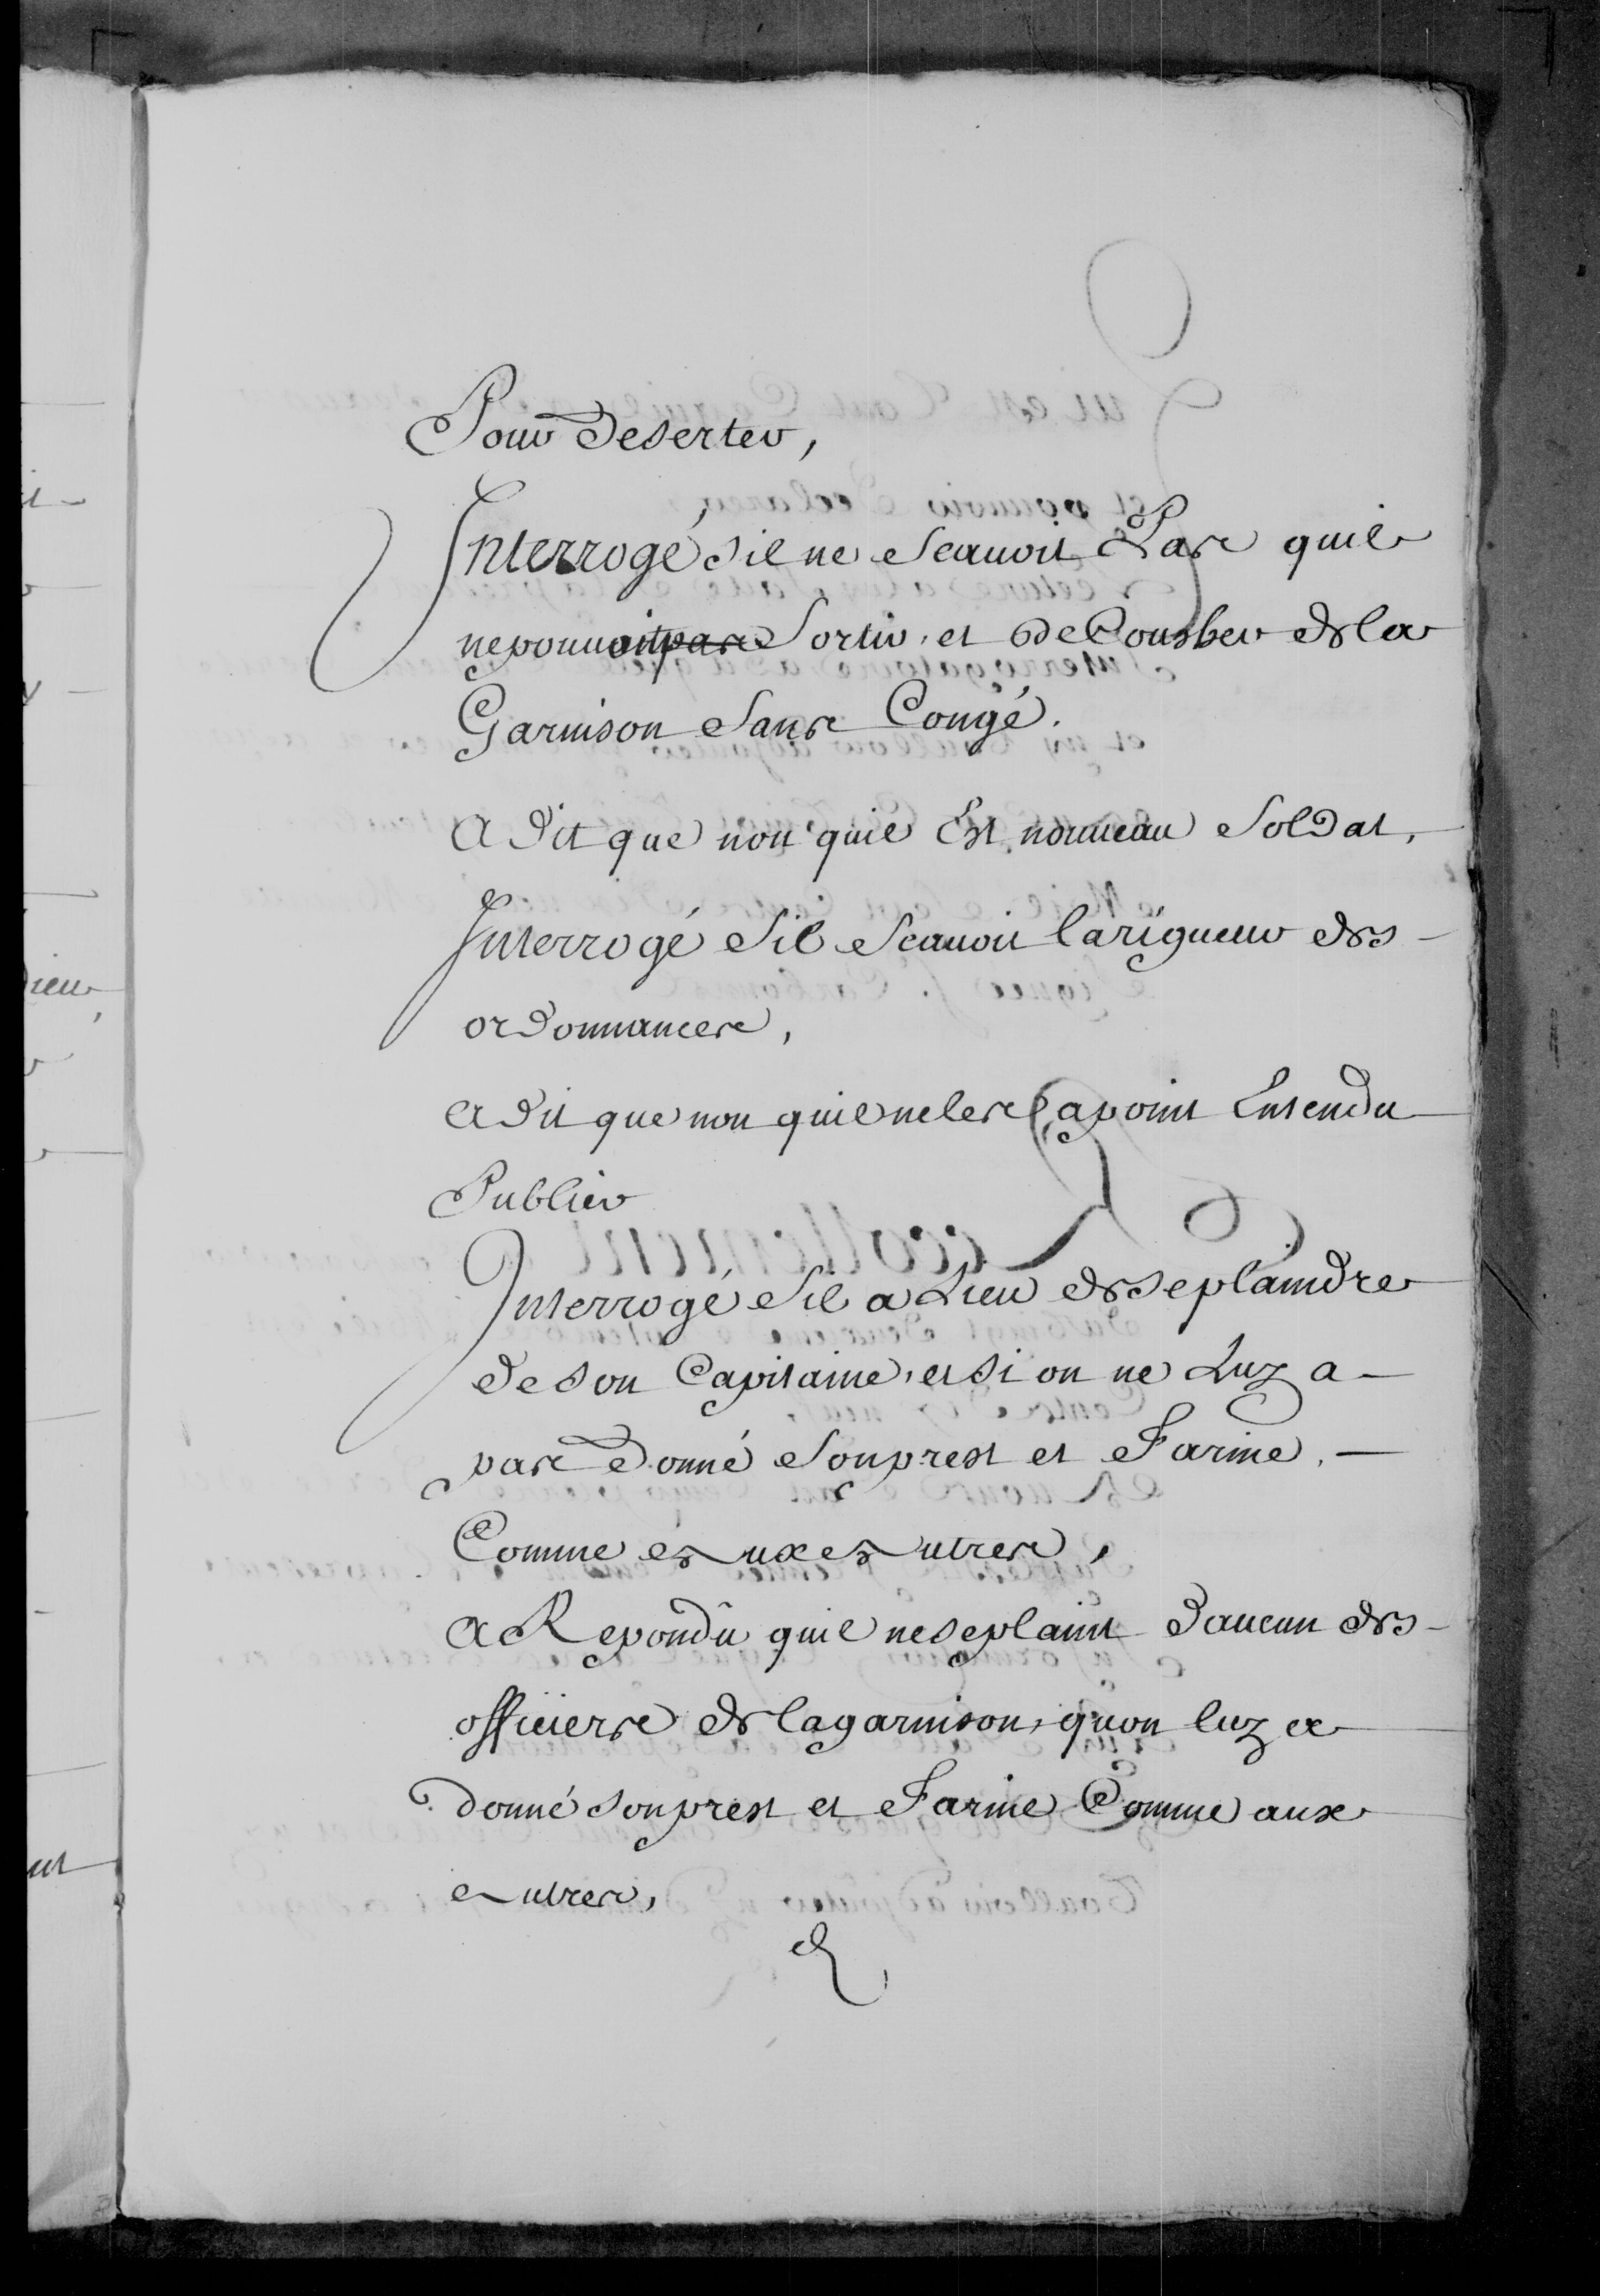 Pour Deserter,
Interrogé sil ne Scauoit Pas quil
ne pouuoit pas Sortir, et decoucher de la
Garnison Sans Congé.
a Dit que non quil Est nouueau Soldat,
Interrogé Sil Scauoit la rigueur des
ordonnances,
a dit que non quil ne les a point Entendu
Publier
Interrogé Sil a Lieu de se plaindre
de son Capitaine, et si on ne Luy a
pas Donné Son prest et Farine,
Comme aux autres,
a Repondu quil ne se plaint Daucun des
officiers de la garnison, quon luy a
donné son prest et Farine Comme aux
autres,